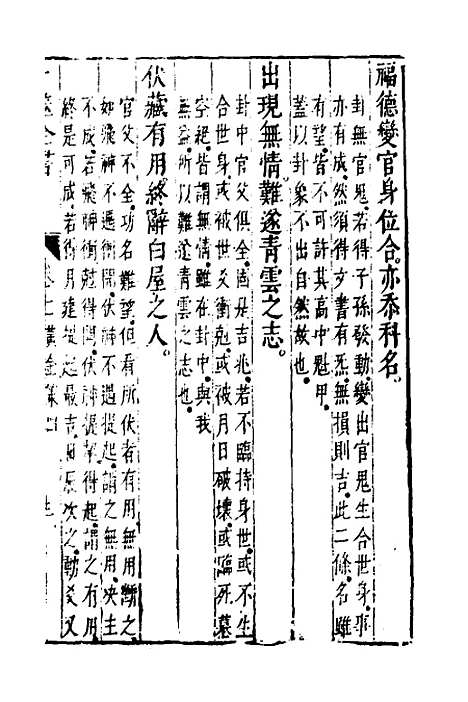 福德變官身位合。亦忝科名。
封無官鬼。若得子孫發動。變出官鬼生合世身。事
亦有成。然須得父書有炁。無損則吉。此二條。名雖
有望。皆不可許其高中魁甲。
蓋以卦象不出自然故也。
出現無情。難遂青雲之志。
卦中官父俱全。固是吉兆。若不臨持身世。或不生
合世身。或被世爻衝剋。或被月日破壞。或臨死墓
空絕。皆謂無情。雖在卦中。與我
無益。所以難遂青雲之志也。
伏藏有用。終辭白屋之人。
官父不全。功名難望。但看所伏者有用無用斷之。
如飛神不遇衝開。伏神不遇提起。謂之無用。決主
不成。若飛神衝剋得開。伏神提挈得起。謂之有用
終是可成。若得月建提起最吉。日辰次之。動爻又
卜筮全書 卷十 黃金策四